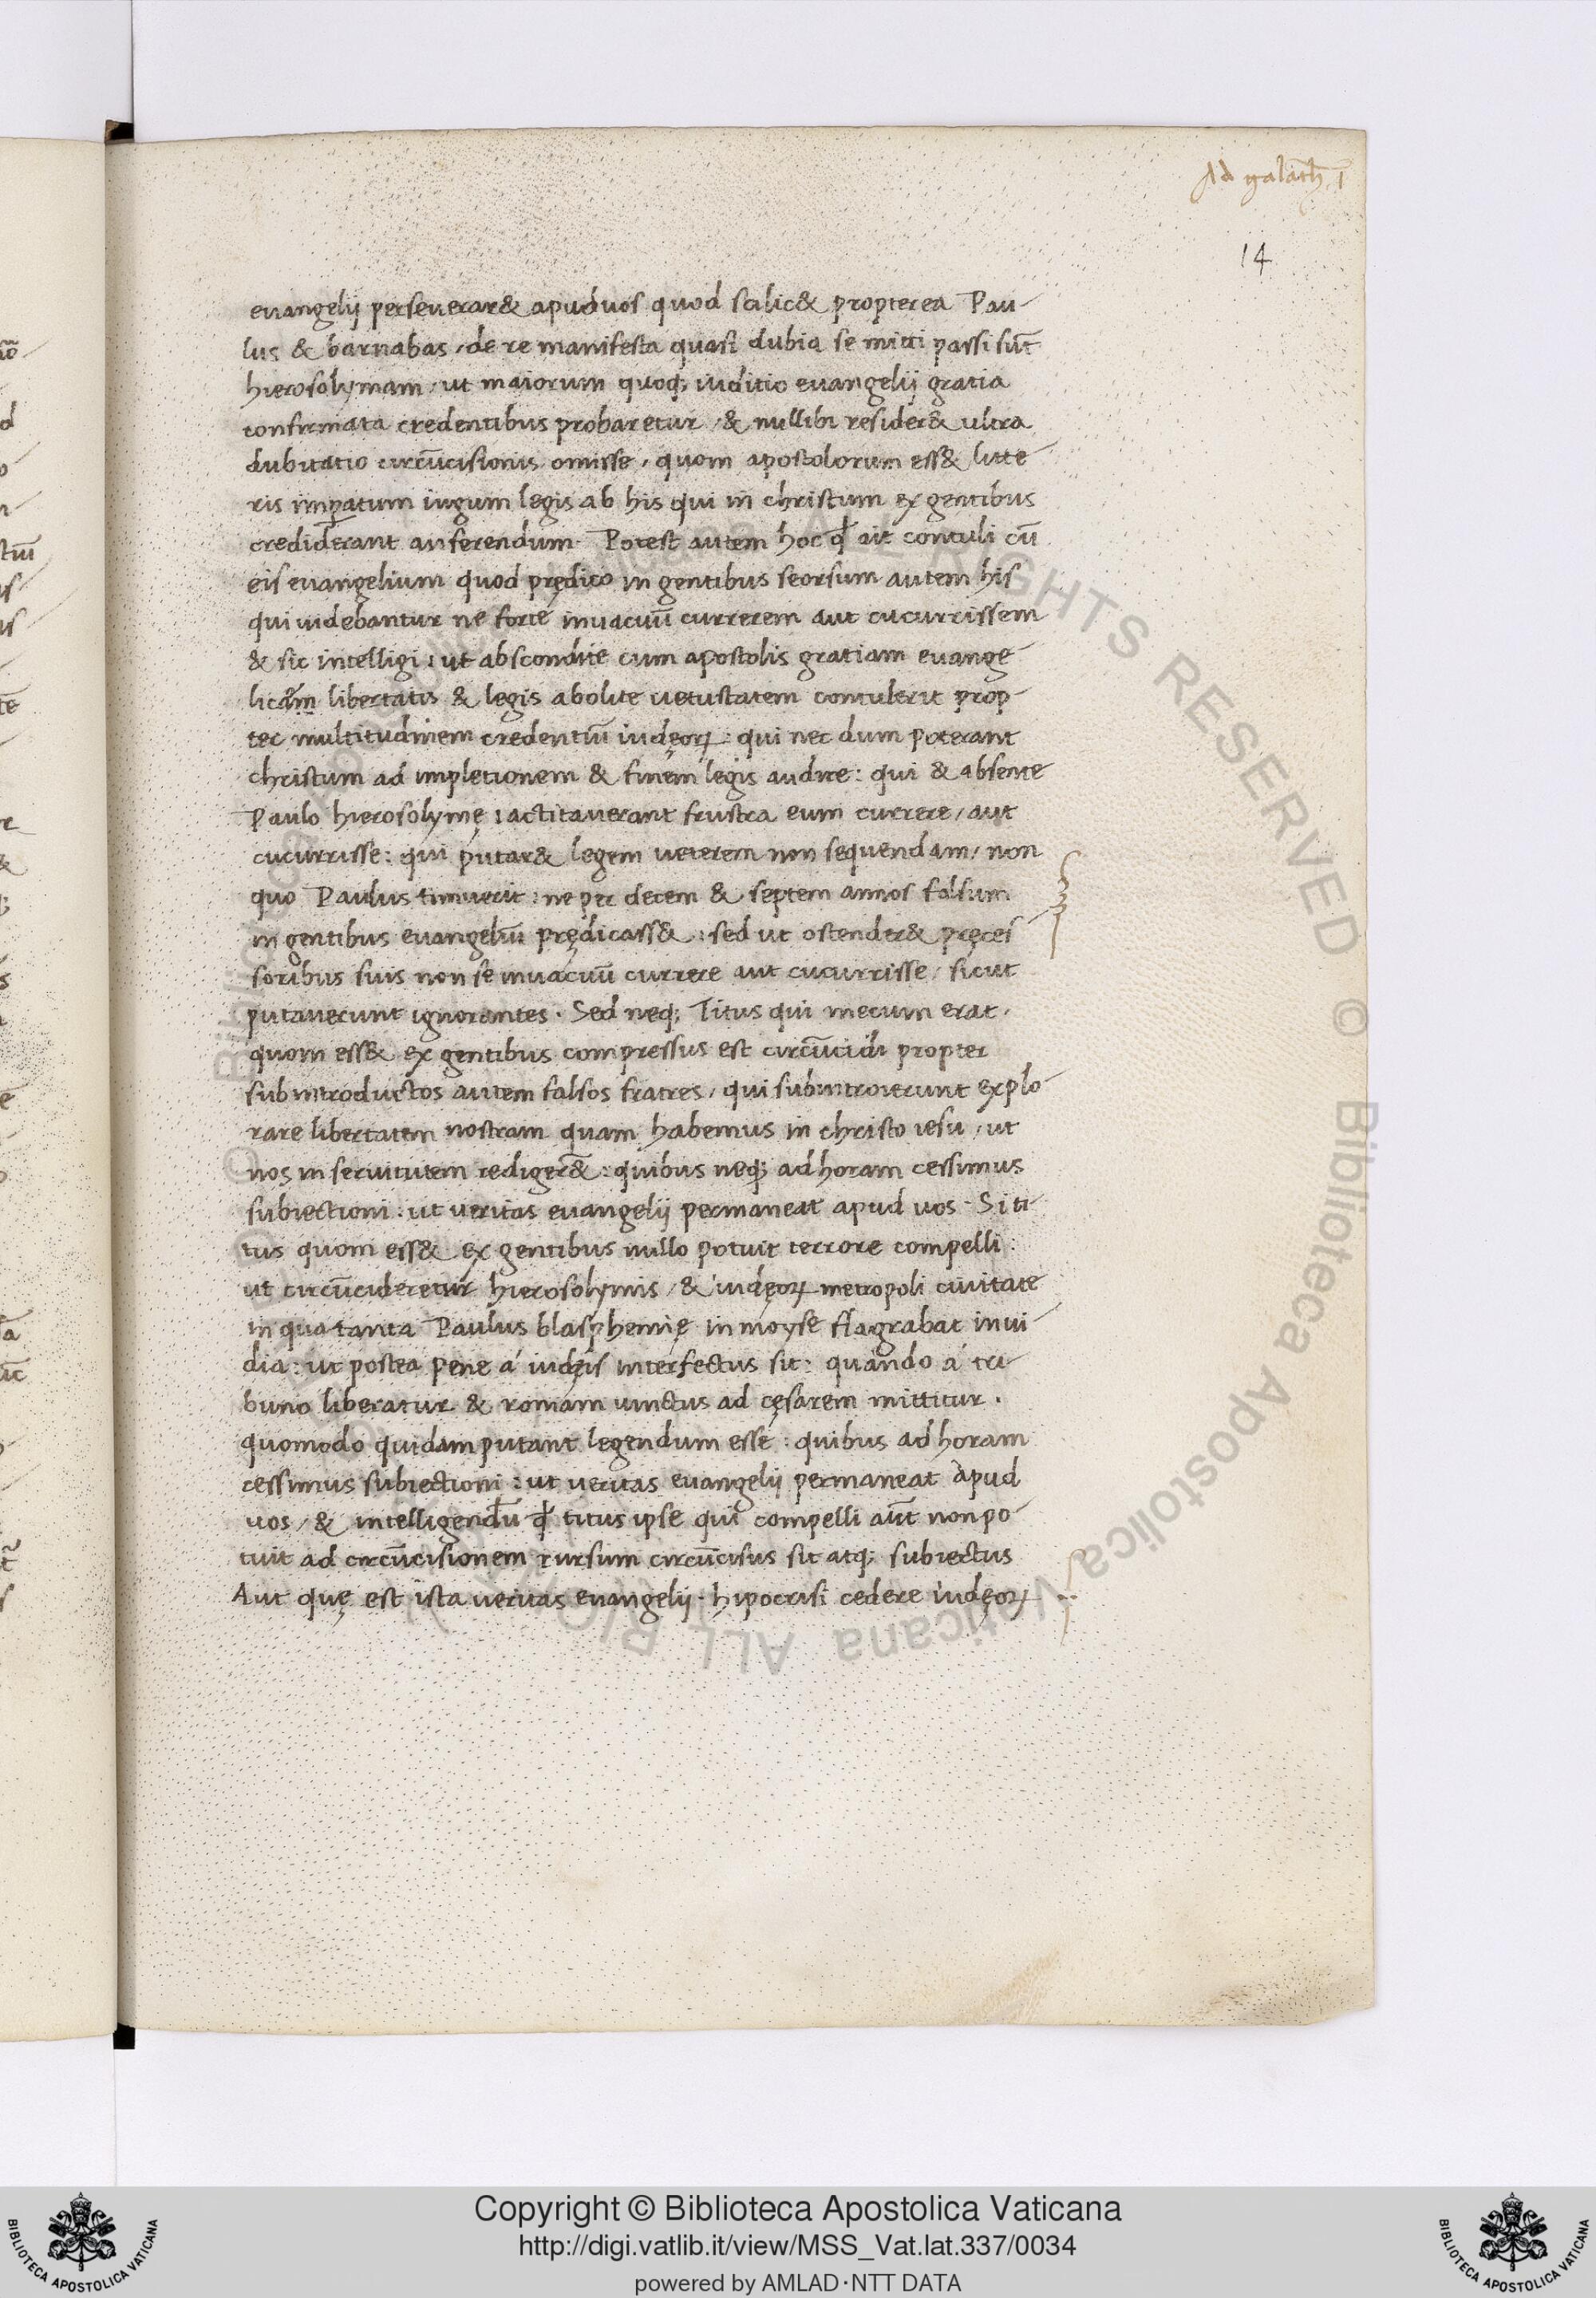 Ad galath. 1
14
euangelij perseuerar& apud uos quod scilic& propterea Pau-
lus & barnabas / de re manifesta quasi dubia se mitti passi sūt
hierosolymam / ut maiorum quoq; iuditio euangelij gratia
confirmata credentibus probaretur / & nullibi resider& ultra
dubitatio circūcisionis omisse / quom apostolorum ess& litte-
ris imꝑatum iugum legis ab his qui in christum ex gentibus
crediderant auferendum. Potest autem hoc qđ ait contuli cū
eis euangelium quod prędico in gentibus seorsum autem his
qui uidebantur ne forte inuacuū currerem aut cucurrissem
& sic intelligi : ut abscondite cum apostolis gratiam euange-
licam libertatis & legis abolite uetustatem contulerit prop-
ter multitudinem credentiū iudęoꝝ : qui nec dum poterant
christum ad impletionem & finem legis audire : qui & absente
Paulo hierosolymę : actitauerant frustra eum currere / aut
cucurrisse : qui putar& legem ueterem non sequendam / non
quo Paulus timuerit : ne per decem & septem annos falsum
in gentibus euangeliū prędicass& : sed ut ostender& pręces
soribus suis non se inuacuū currere aut cucurrisse / sicut
putauerunt ignorantes. Sed neq; Titus qui mecum erat.
quom ess& ex gentibus compressus est circūcidi propter
subintroductos autem falsos fratres / qui subintroierunt explo-
rare libertatem nostram quam habemus in christo iesu / ut
nos in seruitutem rediger& : quibus neq; ad horam cessimus
subiectioni : ut ueritas euangelij permaneat apud uos. Si ti-
tus quom ess& ex gentibus nullo potuit terrore compelli :
ut circūcideretur hierosolymis / & iudęoꝝ metropoli ciuitate
in qua tanta Paulus blasphemię in moyse flagrabat inui-
dia : ut postea pene á iudęis interfectus sit : quando á tri-
buno liberatur & romam uinctus ad cęsarem mittitur.
quomodo quidam putant legendum esse : quibus ad horam
cessimus subiectioni : ut ueritas euangelij permaneat apud
uos / & intelligendū qđ titus ipse qui compelli aūt non po-
tuit ad circūcisionem rursum circūcisus sit atq; subiectus
Aut quę est ista ueritas euangelij. hipocrisi cedere iudęoꝝ
Copyright © Biblioteca Apostolica Vaticana
http://digi.vatlib.it/view/MSS_Vat.lat.337/0034
powered by AMLAD·NTT DATA